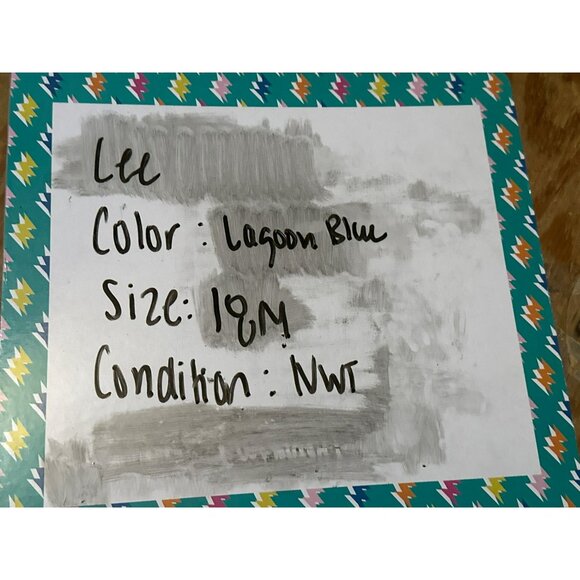 Lee
Color: Lagoon Blue
Size: 18M
Condition: NWT